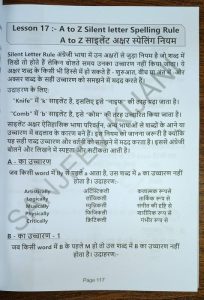 Lesson 17 :- A to Z Silent letter Spelling Rule
A to Z साइलेंट अक्षर स्पेलिंग नियम
Silent Letter Rule अंग्रेजी भाषा में उन अक्षरों से जुड़ा नियम है जो शब्द में
लिखे तो होते हैं लेकिन बोलते समय उनका उच्चारण नहीं किया जाता। ये
अक्षर शब्द के किसी भी हिस्से में हो सकते हैं - शुरुआत, बीच या अंत में और
अक्सर शब्द के सही उच्चारण को समझने में मदद करते हैं।
उदाहरण के लिए:
"Knife" में 'k' साइलेंट है, इसलिए इसे "नाइफ" की तरह पढ़ा जाता है।
"Comb" में 'b' साइलेंट है, इसे "कोम" की तरह उच्चारित किया जाता है।
साइलेंट अक्षर ऐतिहासिक भाषा परिवर्तन, अन्य भाषाओं से शब्दों के आने या
उच्चारण में बदलाव के कारण बने हैं। इस नियम को जानना जरूरी है क्योंकि
यह सही शब्द उच्चारण और वर्तनी को समझने में मदद करता है। इससे अंग्रेजी
बोलने और लिखने में स्पष्टता और सटीकता आती है।
A - का उच्चारण
जब किसी word में lly से पहले a आता है, उस शब्द में a का उच्चारण नहीं
होता है। उदाहरण:-
Artistically आर्टिस्टिकली कलात्मक रूप से
Logically लॉजिकली तार्किक रूप से
Musically म्यूजिकली संगीत की दृष्टि से
Physically फिजिकली शारीरिक रूप से
Critically क्रिटिकली गंभीर रूप से
B - का उच्चारण - 1
जब किसी word में B के पहले M हो तो उस शब्द में B का उच्चारण नहीं
होता है। उदाहरण:-
Page 117